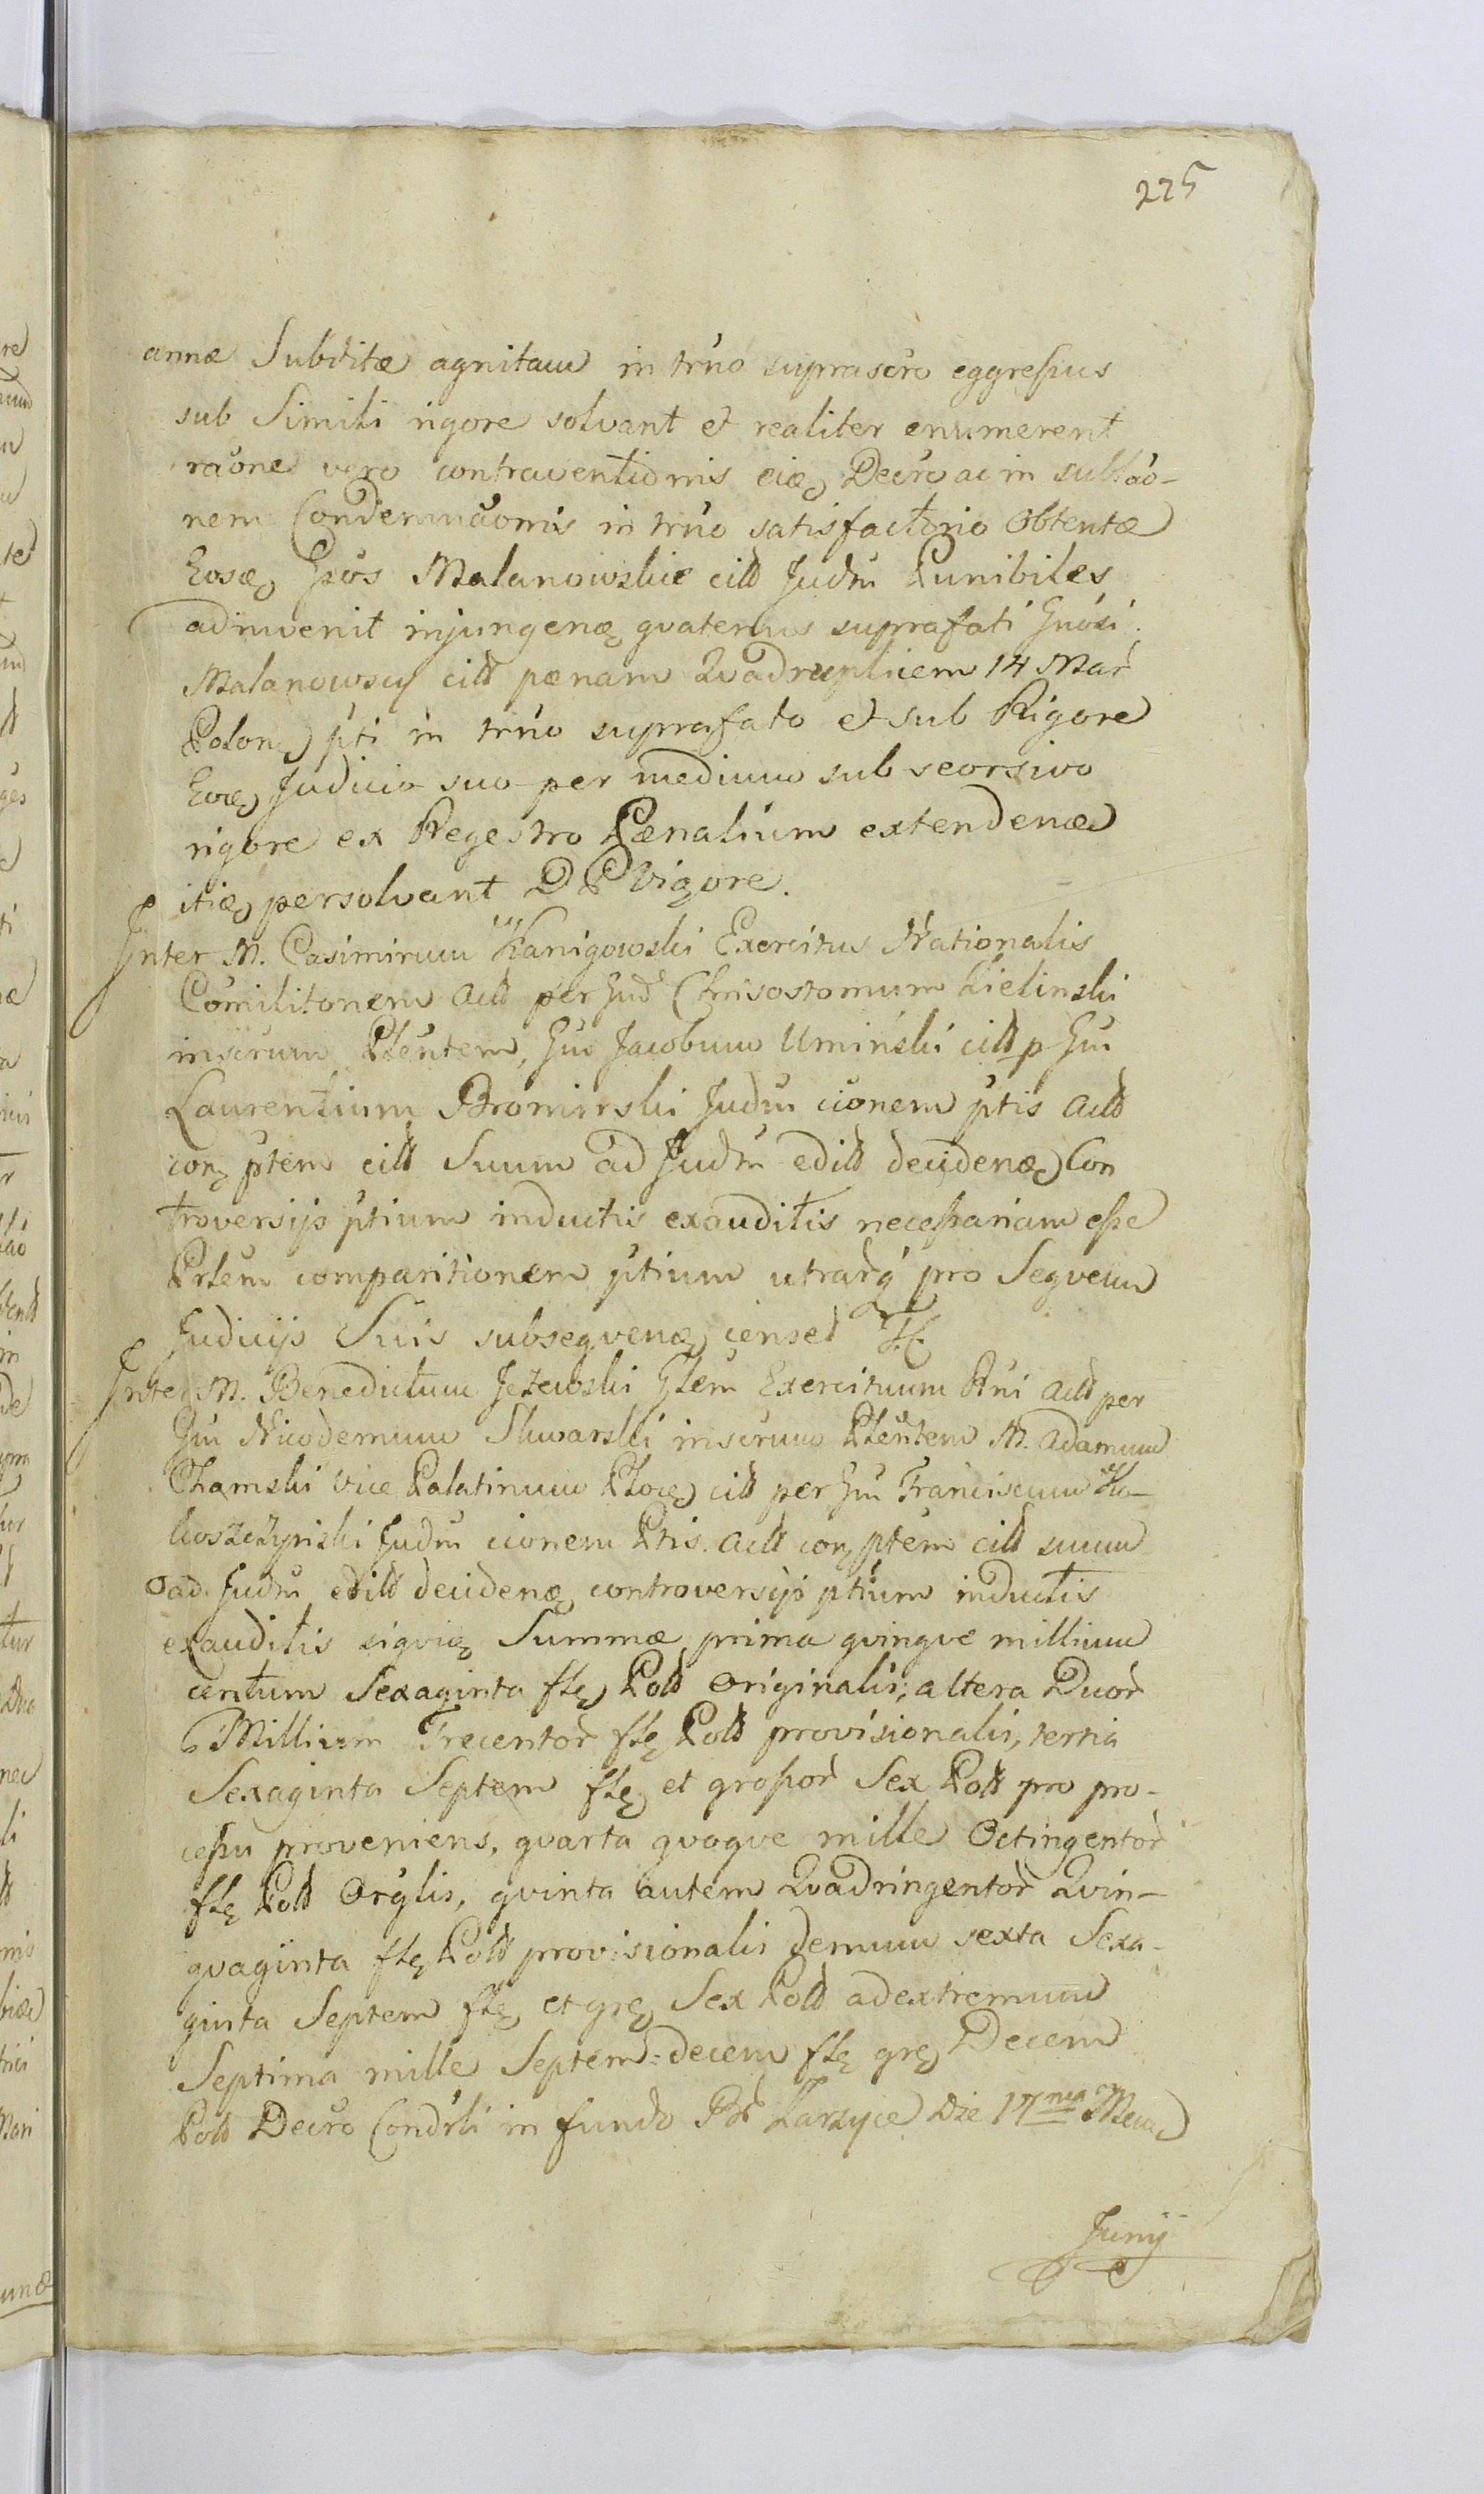 225
annæ Subditæ agnitam in trno suprascro eggressus
sub Simili rigore solvant et realiter enumerent
raone vero contraventionis eiæ Decro ac in sublao-
nem Condemnaonis in trno satisfactorio Obtentæ
Eosæ Gnos Malanowskie citt Judm Punibiles
adinvenit injungenæ qvatenus suprafati Gnosi
Malanowscy citt pænam Qvadruplicem 14 Mar
Polonę pti in trno suprafato et sub Rigore
Eoræ Judicio suo per medium sub seorsivo
rigore ex Regestro Pœnalium extendenæ
itiæ persolvant D P Vigore.
Inter M. Casimirum Kanigowski Exercitus Nationalis
Comilitonem Actt per Gnd Chrisostomum Zielinski
inscrum Plentem, Gm Jacobum Umiński citt p Gm
Laurentium Brominski Judm cionem ptis Actt
conę ptem citt Suum ad Judm editt decidenæ Con
troversijs ptium inductis exauditis necessariam esse
Prlem comparitionem ptium utrarq pro Seqveum
Judicijs Suis subseqvenæ censed
Inter M. Benedictum Jeżewski Glem Exercituum Rni Actt per
Gm Nicodemum Skwarski inscrum Plentem M. Adamum
Chamski Vice Palatinum Plocę citt per Gm Franciscum Ko-
koszczynski Judm cionem Ptis. Actt conę ptem citt suum
ad Judm editt decidenæ controversijs ptium inductis
exauditis siqvię Summæ prima qvinqve millium
centum Sexaginta flę Poltt Originalis; altera Duor
Millium Trecentor flę Poltt provisionalis, tertia
Sexaginta Septem flę et grossor Sex Poltt pro pro-
cessu proveniens, qvarta qvoqve mille Octingentor
flę Poltt Orglis, qvinta autem Qvadringentor Qvin-
qvaginta flę Poltt provisionalis demum sexta Sexa-
ginta Septem flę et grę Sex Poltt ad extremum
Septima mille Septem=decem flę grę Decem
Poltt Decro Condrli in fundo Br Karzyce Die 17ma Mca
Junij